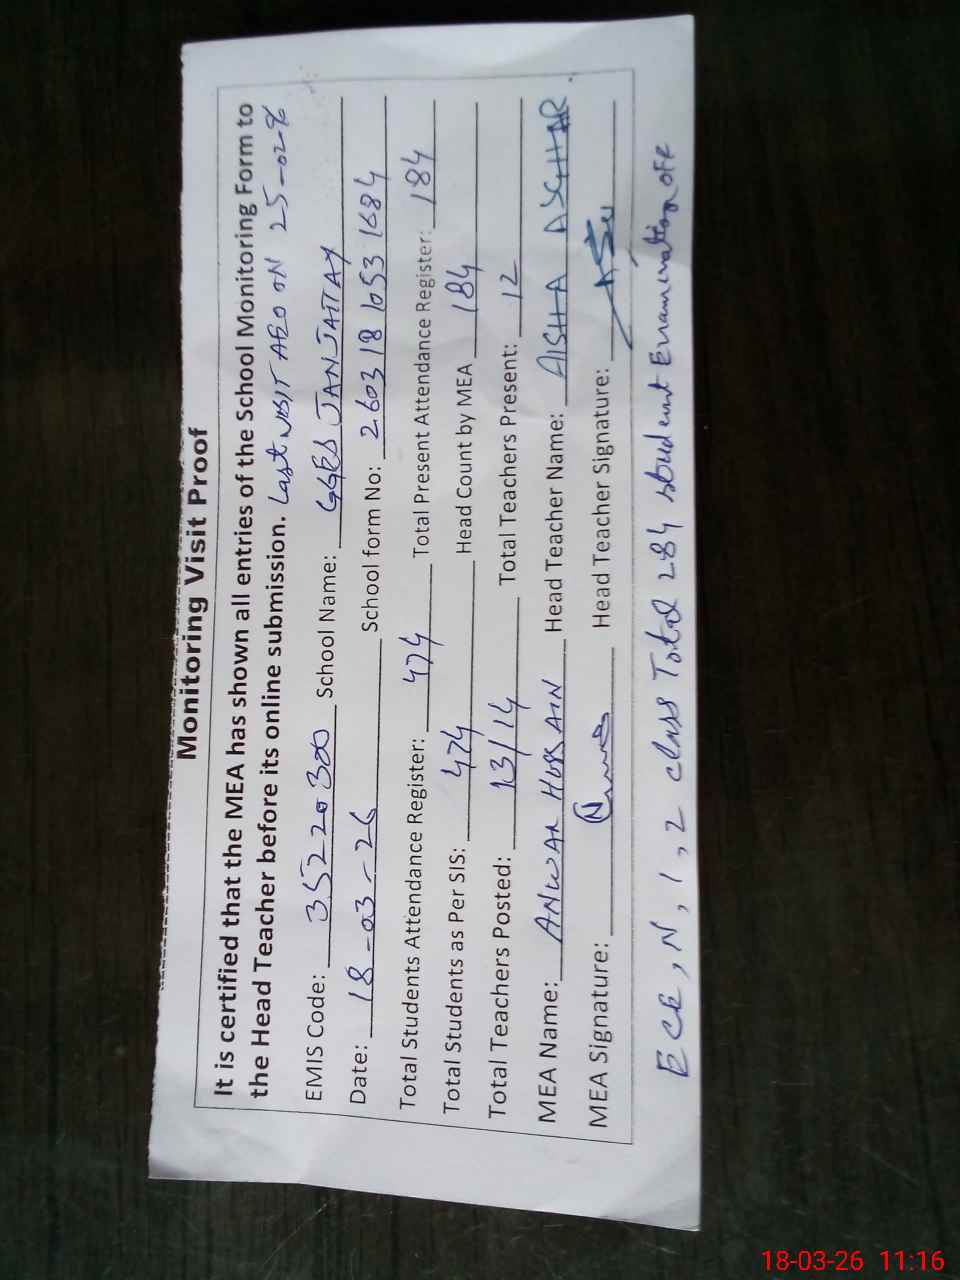 Monitoring Visit Proof
It is certified that the MEA has shown all entries of the School Monitoring Form to
the Head Teacher before its online submission. Last VISIT AEO ON 25-02-26
EMIS Code: 35220300 School Name: GGES JANJATTAY
Date: 18-03-26 School form No: 260318 1053 1684
Total Students Attendance Register: 474 Total Present Attendance Register: 184
Total Students as Per SIS: 474 Head Count by MEA 184
Total Teachers Posted: 13/14 Total Teachers Present: 12
MEA Name: ANWAR HUSSAIN Head Teacher Name: AISHA ASGHAR
MEA Signature: Head Teacher Signature:
ECE, N, 1, 2 class Total 284 student Examination off
18-03-26 11:16